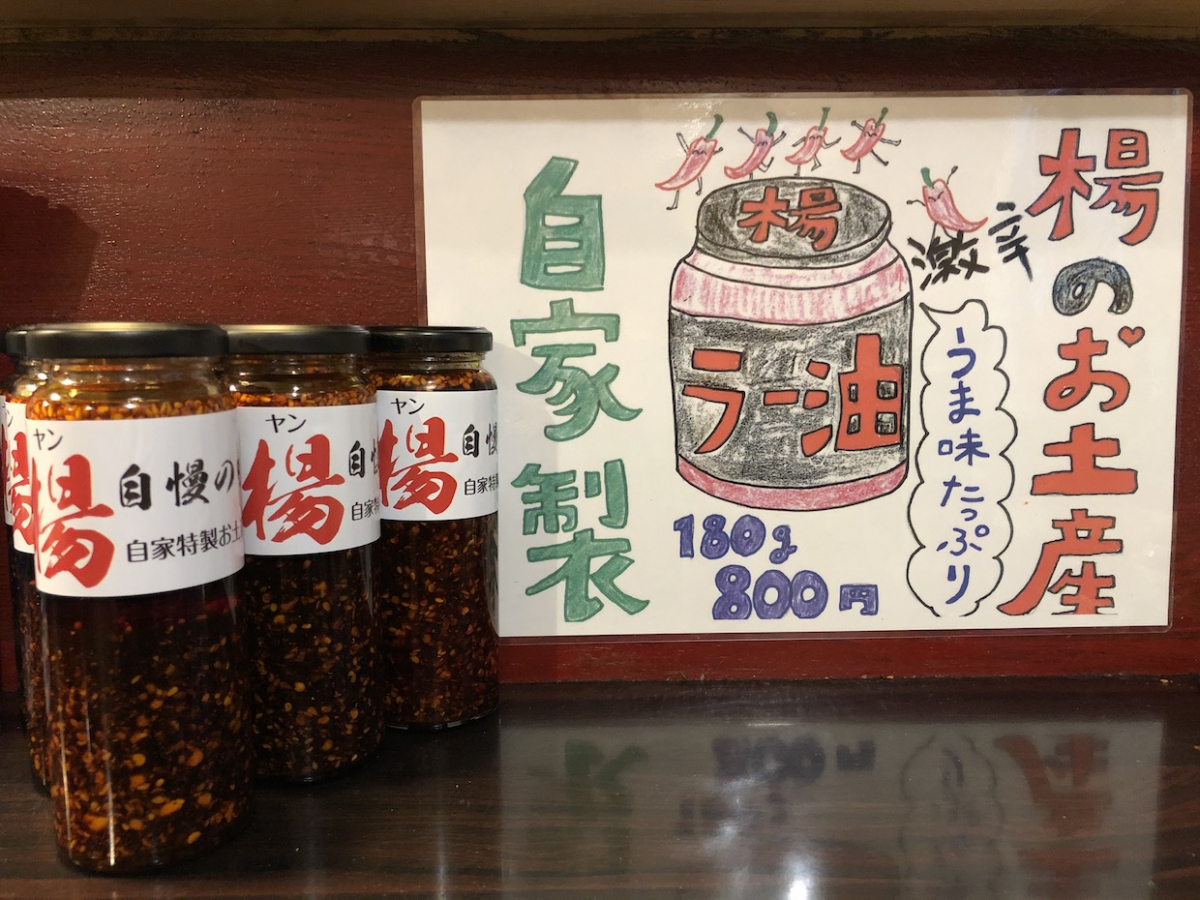 楊のお土産
激辛
うま味たっぷり
楊
ラー油
180g
800円
自家製
ヤン
楊
自慢の
自家特製お土
ヤン
楊
自
自家特
ヤン
楊
自慢
自家特製